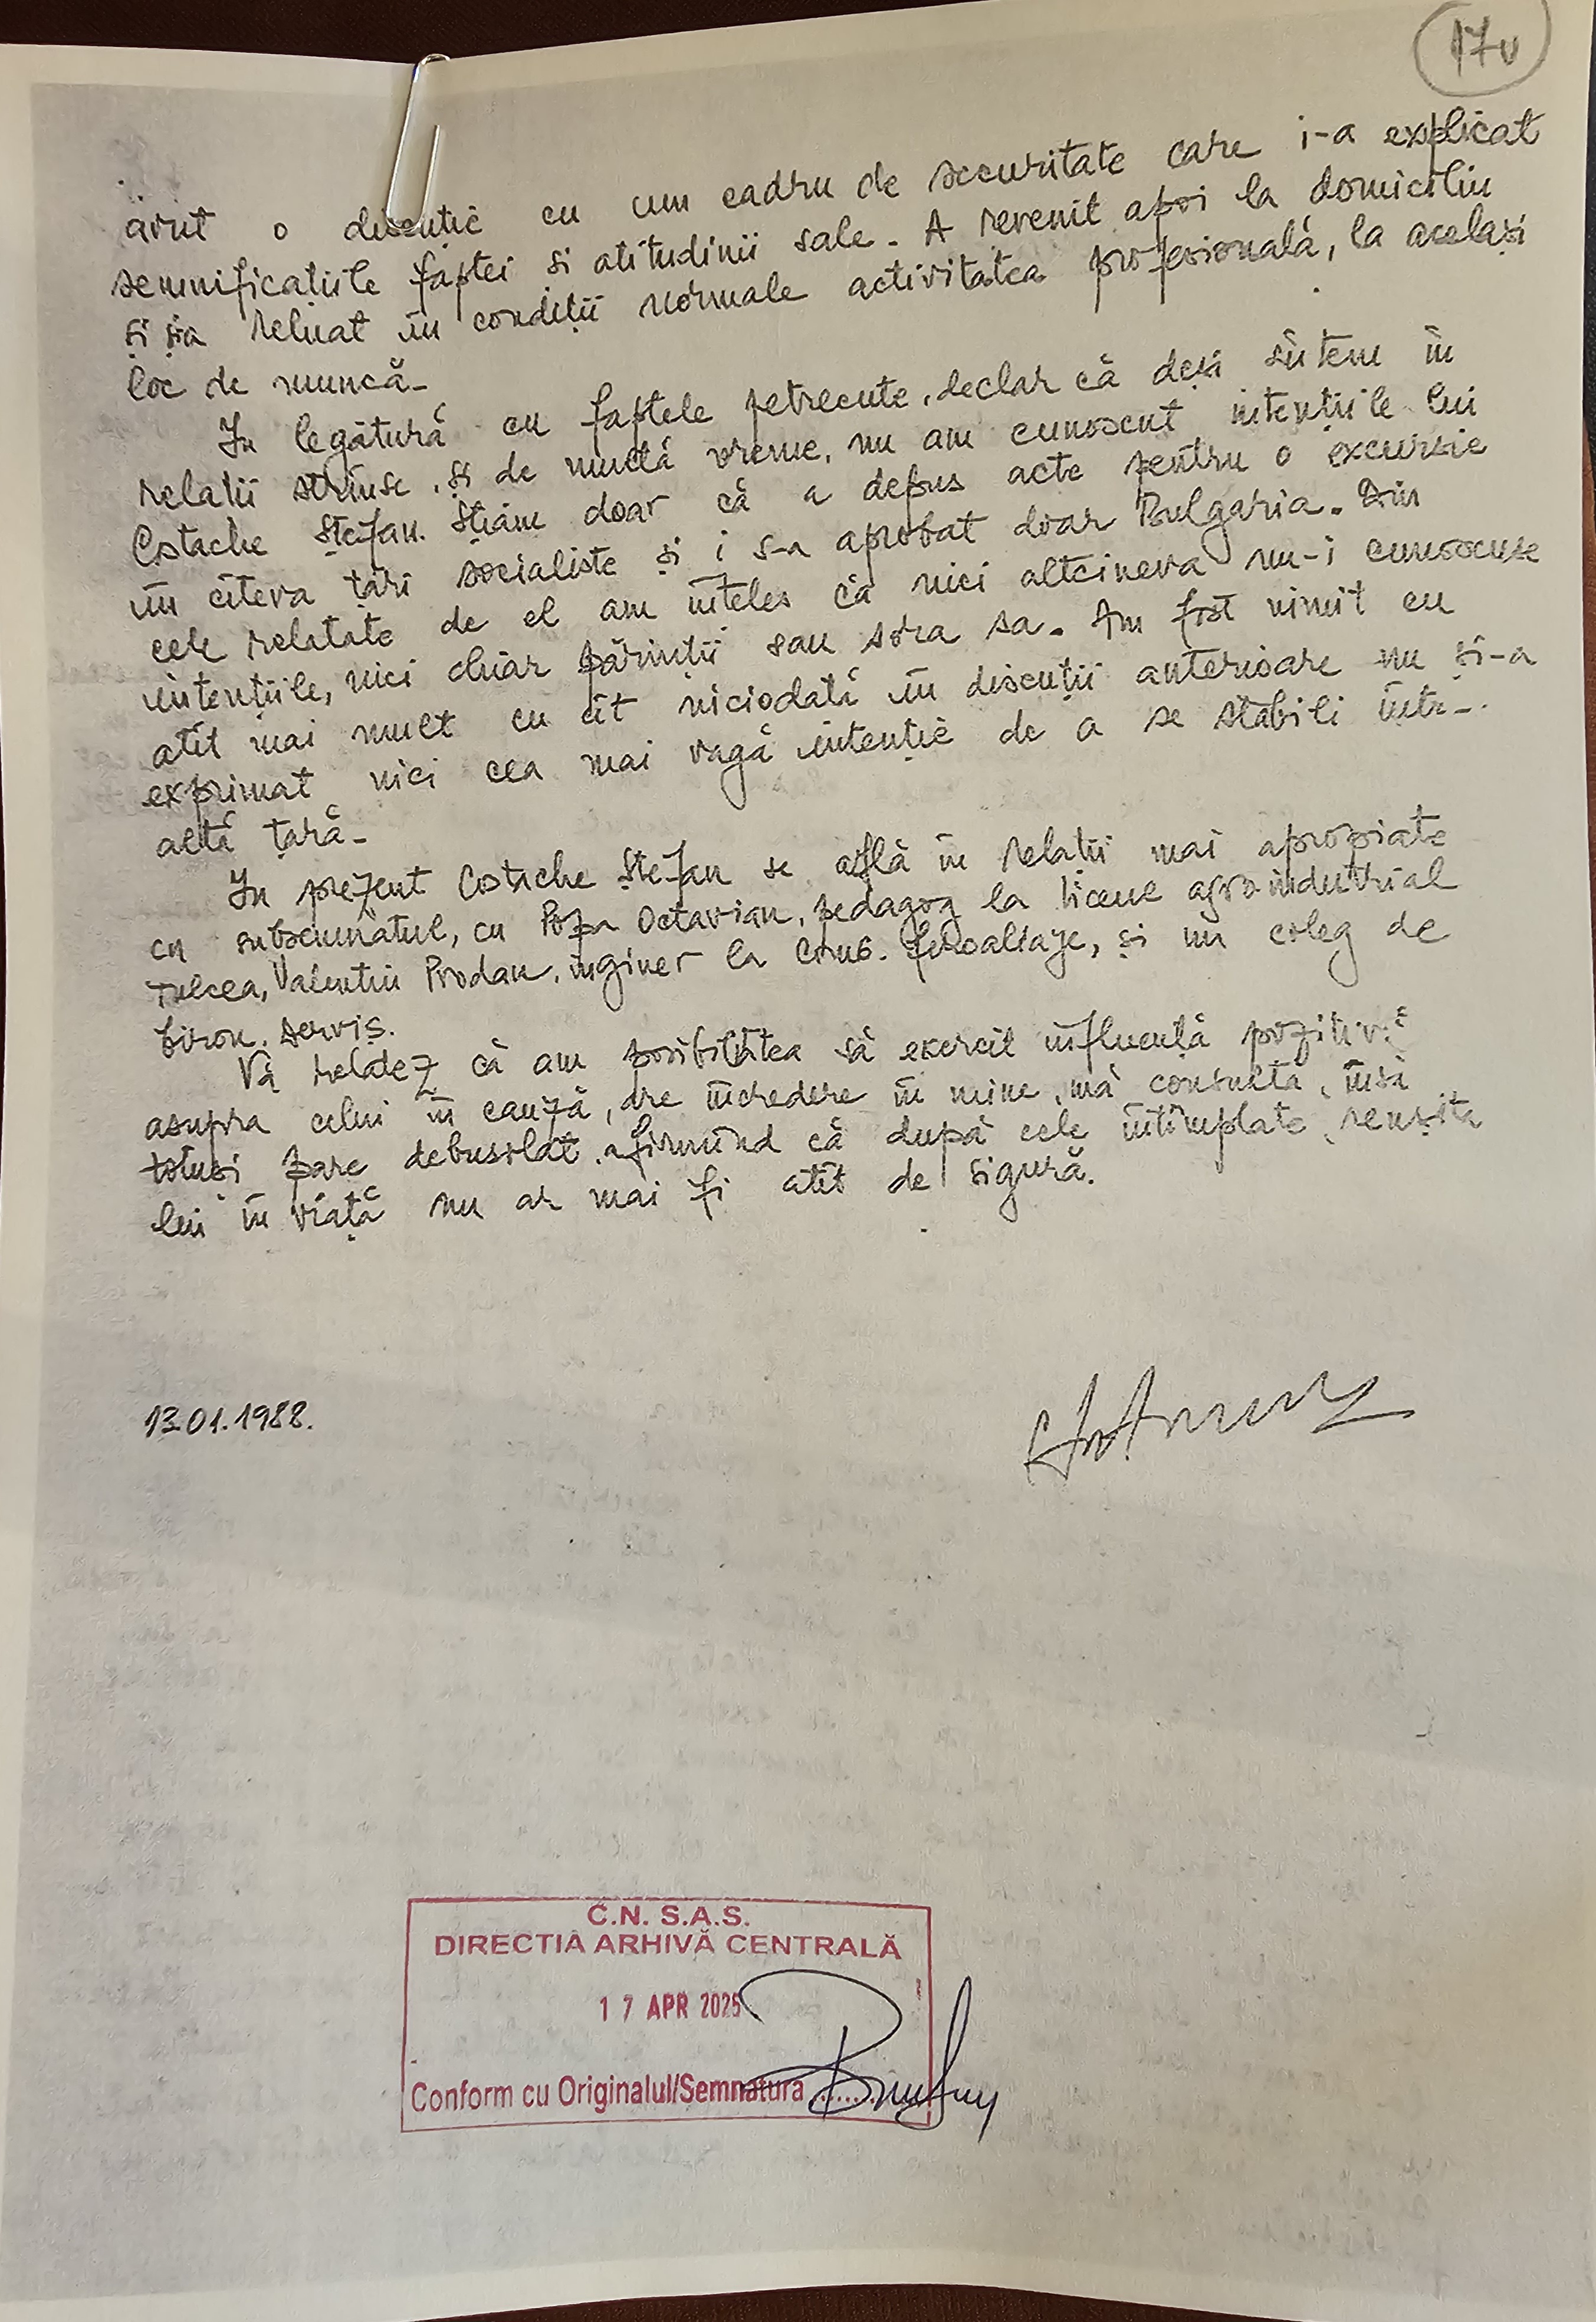 17v
avut o discuție cu un cadru de securitate care i-a explicat
semnificațiile faptei și atitudinii sale. A revenit apoi la domiciliu
și și-a reluat în condiții normale activitatea profesională, la același
loc de muncă.
In legătură cu faptele petrecute, declar că deși sîntem în
relații strînse, și de multă vreme, nu am cunoscut intențiile lui
Costache Ștefan. Știam doar că a depus acte pentru o excursie
în cîteva țări socialiste și i s-a aprobat doar Bulgaria. Din
cele relatate de el am înțeles că nici altcineva nu-i cunoscuse
intențiile, nici chiar părinții sau sora sa. Am fost uimit cu
atît mai mult cu cît niciodată în discuții anterioare nu și-a
exprimat nici cea mai vagă intenție de a se stabili într-
altă țară.
In prezent Costache Ștefan se află în relații mai apropiate
cu subsemnatul, cu Popa Octavian, pedagog la liceul agroindustrial
Tulcea, Valentin Prodan, inginer la Comb. feroaliaje, și un coleg de
birou, serviș.
Vă relatez că am posibilitatea să exercit influență pozitivă
asupra celui în cauză, are încredere în mine, mă consultă, însă
totuși pare debusolat, afirmînd că după cele întîmplate, reușita
lui în viață nu ar mai fi atît de sigură.
13.01.1988.
C.N. S.A.S.
DIRECTIA ARHIVĂ CENTRALĂ
17 APR 2025
Conform cu Originalul/Semnatura ........